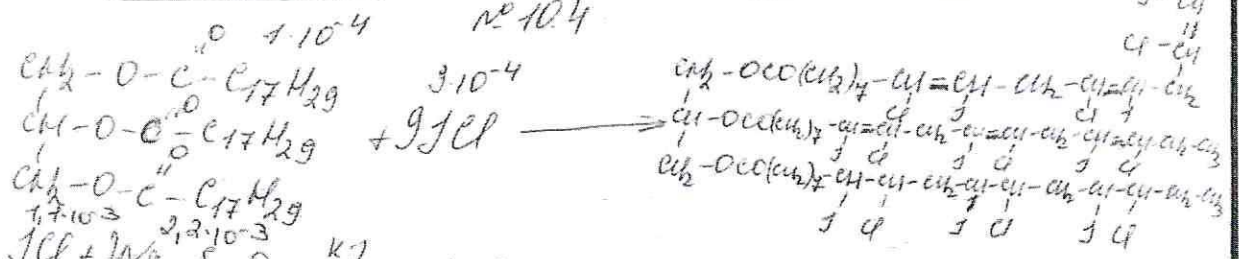 № 10.4
1·10-4
CH2 - O - C - C17H29
O
9·10-4
CH - O - C - C17H29 + 9JCl
O
CH2 - O - C - C17H29
O
1,7·10-3 2,2·10-3
Cl - CH
CH2 - OCO(CH2)7 - CH = CH - CH2 - CH = CH - CH2
Cl J Cl J
CH - OCO(CH2)7 - CH = CH - CH2 - CH = CH - CH2 - CH = CH - CH2 - CH3
J Cl J Cl J Cl
CH2 - OCO(CH2)7 - CH - CH - CH2 - CH - CH - CH2 - CH - CH - CH2 - CH3
J Cl J Cl J Cl